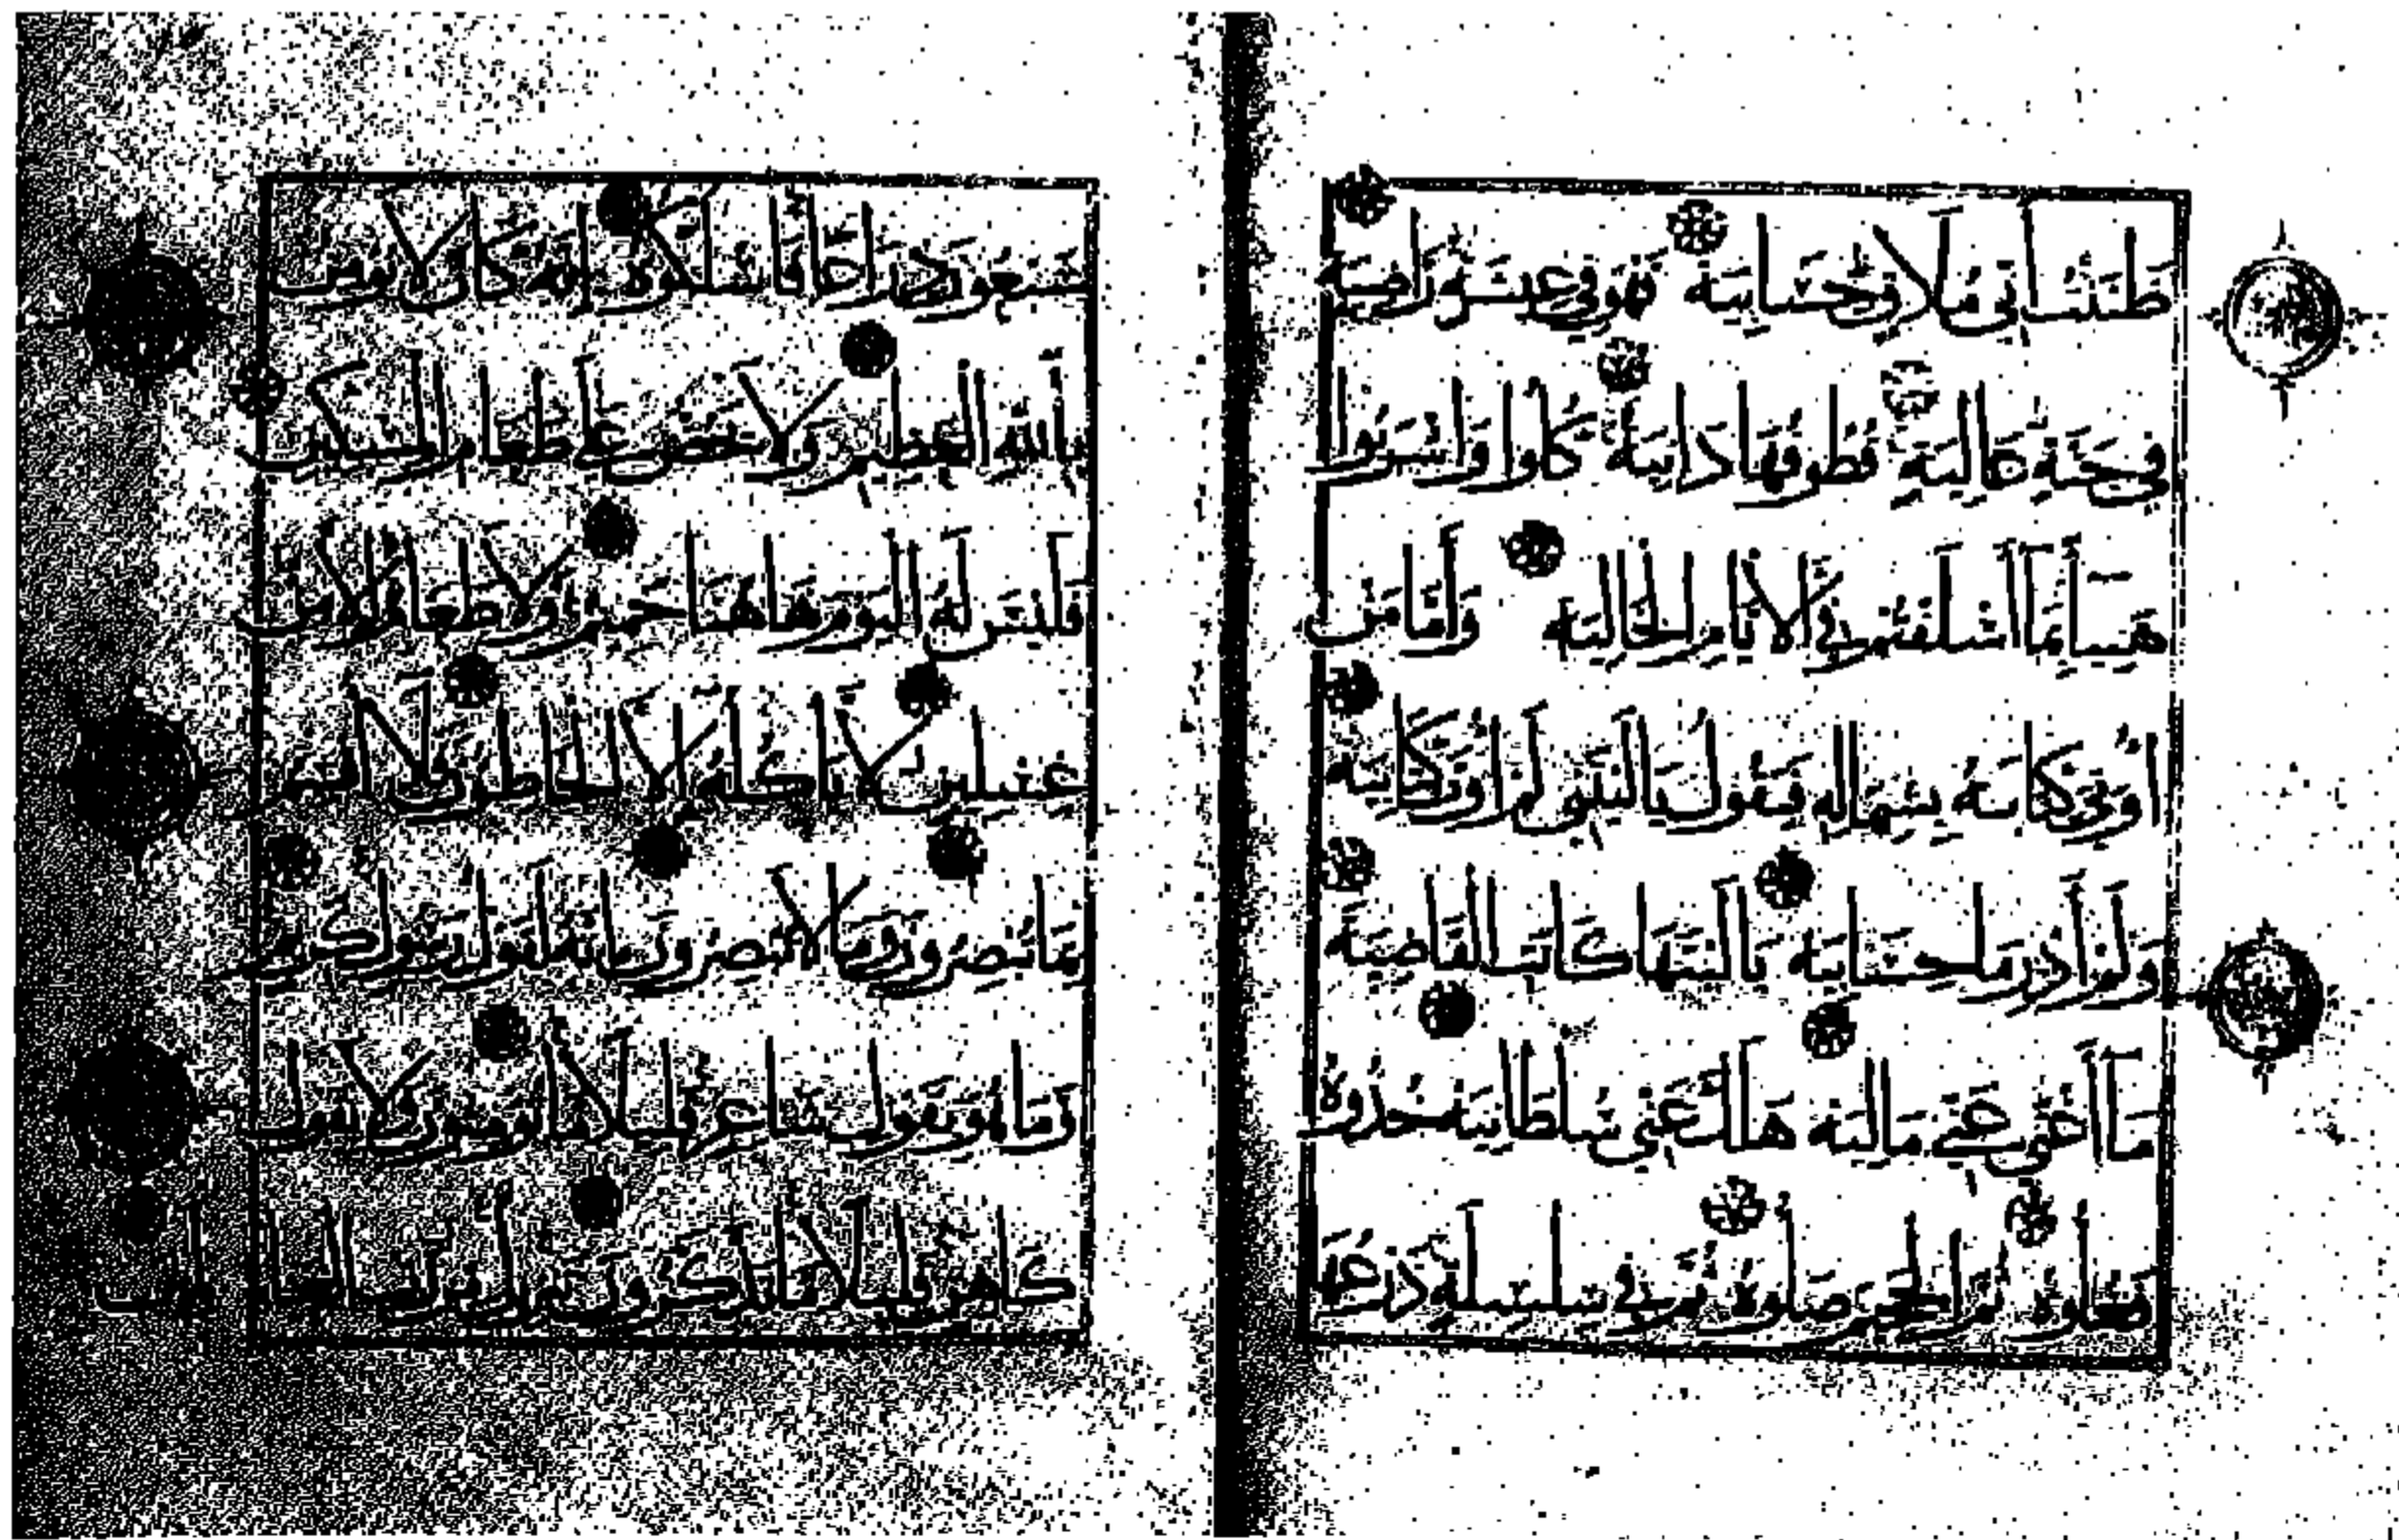 ظَنَنْتُ أَنِّي مُلَاقٍ حِسَابِيَهْ فَهُوَ فِي عِيشَةٍ رَاضِيَةٍ
فِي جَنَّةٍ عَالِيَةٍ قُطُوفُهَا دَانِيَةٌ كُلُوا وَاشْرَبُوا
هَنِيئًا بِمَا أَسْلَفْتُمْ فِي الْأَيَّامِ الْخَالِيَةِ وَأَمَّا مَنْ
أُوتِيَ كِتَابَهُ بِشِمَالِهِ فَيَقُولُ يَا لَيْتَنِي لَمْ أُوتَ كِتَابِيَهْ
وَلَمْ أَدْرِ مَا حِسَابِيَهْ يَا لَيْتَهَا كَانَتِ الْقَاضِيَةَ
مَا أَغْنَى عَنِّي مَالِيَهْ هَلَكَ عَنِّي سُلْطَانِيَهْ خُذُوهُ
فَغُلُّوهُ ثُمَّ الْجَحِيمَ صَلُّوهُ ثُمَّ فِي سِلْسِلَةٍ ذَرْعُهَا
سَبْعُونَ ذِرَاعًا فَاسْلُكُوهُ إِنَّهُ كَانَ لَا يُؤْمِنُ
بِاللَّهِ الْعَظِيمِ وَلَا يَحُضُّ عَلَى طَعَامِ الْمِسْكِينِ
فَلَيْسَ لَهُ الْيَوْمَ هَاهُنَا حَمِيمٌ وَلَا طَعَامٌ إِلَّا مِنْ
غِسْلِينٍ لَا يَأْكُلُهُ إِلَّا الْخَاطِئُونَ فَلَا أُقْسِمُ
بِمَا تُبْصِرُونَ وَمَا لَا تُبْصِرُونَ إِنَّهُ لَقَوْلُ رَسُولٍ كَرِيمٍ
وَمَا هُوَ بِقَوْلِ شَاعِرٍ قَلِيلًا مَا تُؤْمِنُونَ وَلَا بِقَوْلِ
كَاهِنٍ قَلِيلًا مَا تَذَكَّرُونَ تَنْزِيلٌ مِنْ رَبِّ الْعَالَمِينَ